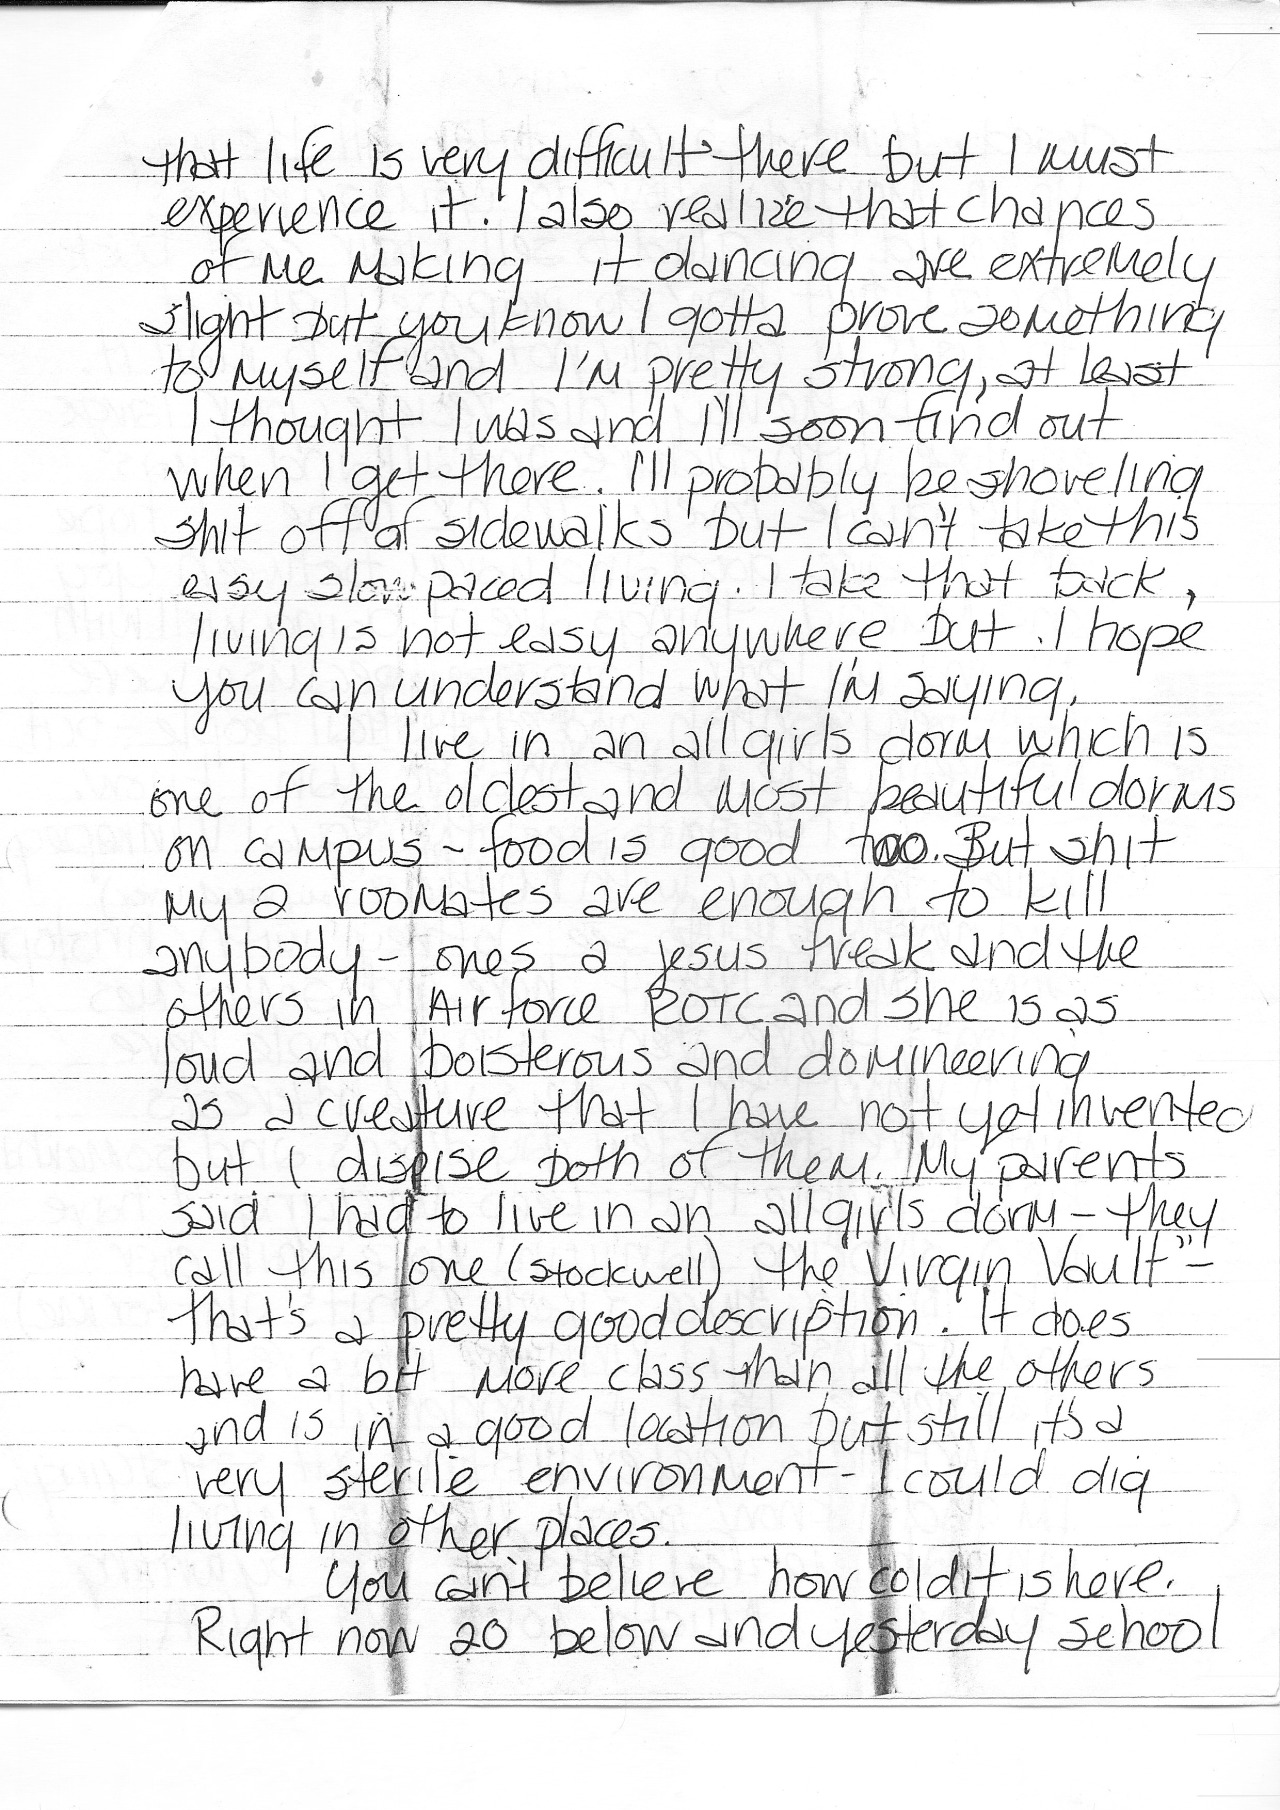 that life is very difficult there but I must
experience it. I also realize that chances
of me making it dancing are extremely
slight but you know I gotta prove something
to myself and I'm pretty strong, at least
I thought I was and I'll soon find out
when I get there. I'll probably be shoveling
shit off of sidewalks but I can't take this
easy slow paced living. I take that back,
living is not easy anywhere but. I hope
you can understand what I'm saying.
I live in an all girls dorm which is
one of the oldest and most beautiful dorms
on campus - food is good too. But shit
my 2 roomates are enough to kill
anybody - ones a jesus freak and the
others in Air force ROTC and she is as
loud and boisterous and domineering
as a creature that I have not yet invented
but I dispise both of them. My parents
said I had to live in an all girls dorm - they
call this one (Stockwell) the Virgin Vault" -
that's a pretty good description. It does
have a bit more class than all the others
and is in a good location but still it's a
very sterile environment - I could dig
living in other places.
You can't believe how cold it is here.
Right now 20 below and yesterday school